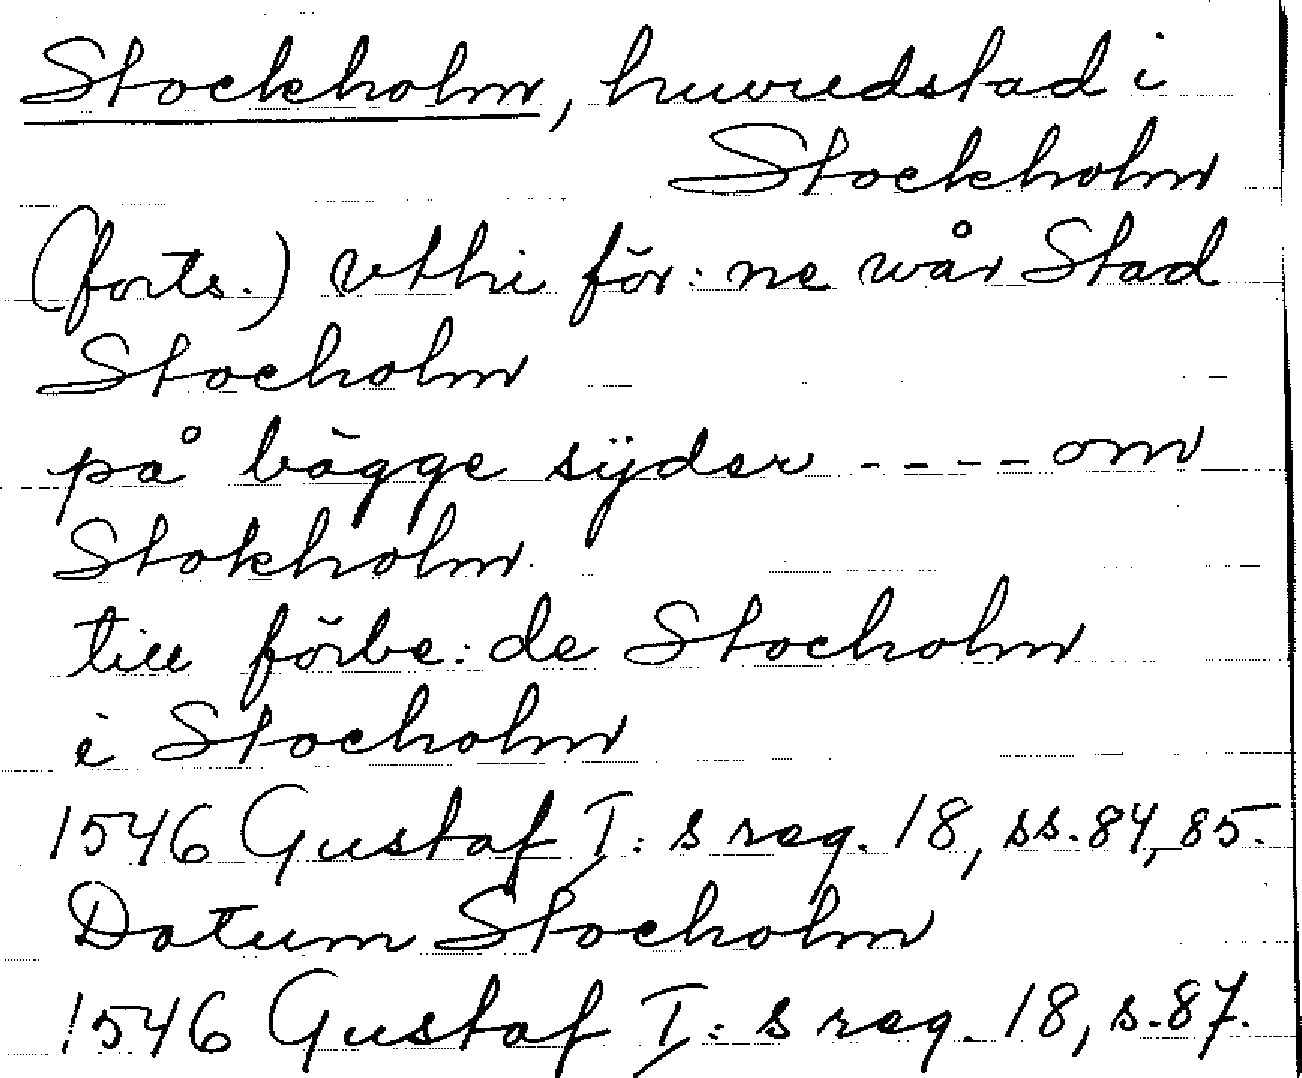 Stockholm, huvudstad i
Stockholm
(forts.) vthi för:ne wår Stad
Stocholm
på bägge sijder ---- om
Stokholm
till förbe:de Stocholm
i Stocholm
1546 Gustaf I:s reg. 18, ss. 84, 85.
Datum Stocholm
1546 Gustaf I:s reg. 18, s. 87.